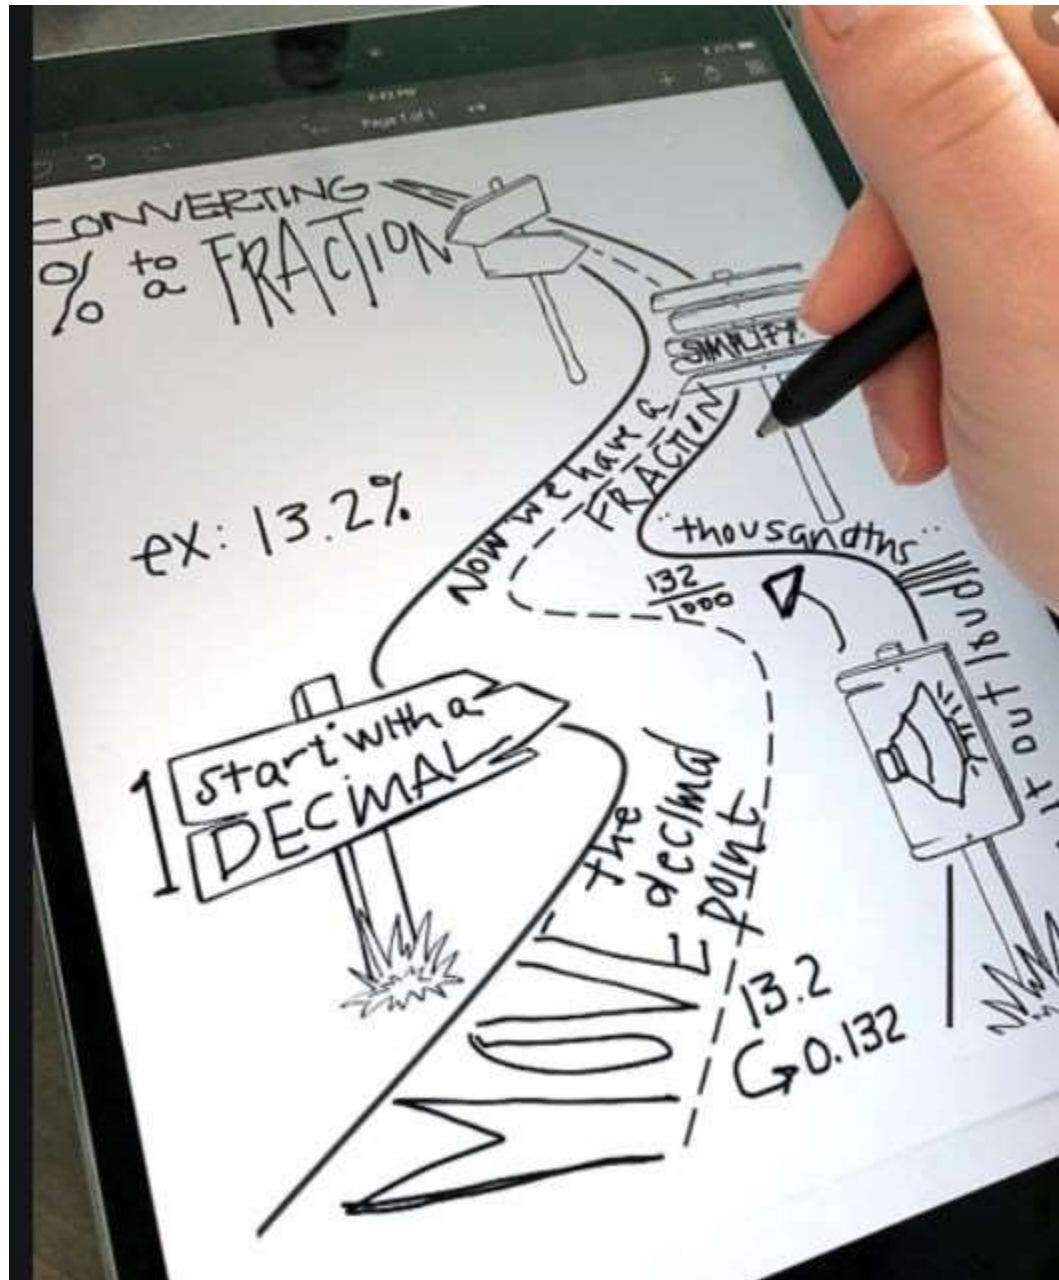 Page 1 of 1
CONVERTING
% to a FRACTION
ex: 13.2%
1 start with a
DECIMAL
MOVE
the
decimal
point
13.2
0.132
read it out loud
"thousandths"
132
1000
Now we have a
FRACTION
SIMPLIFY